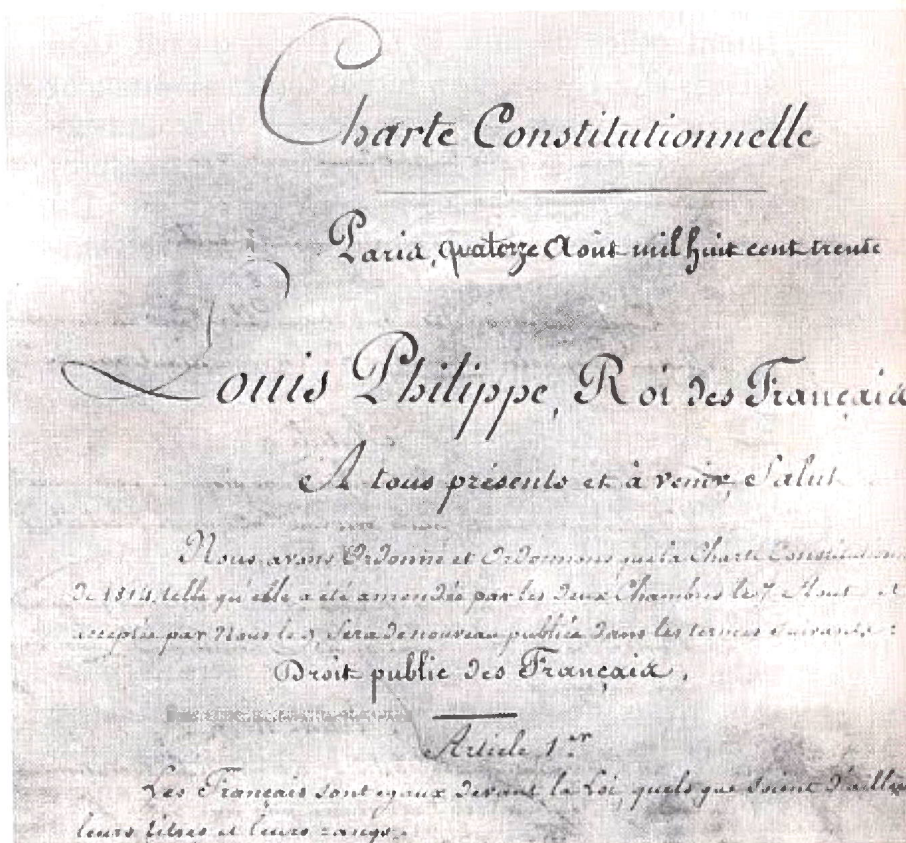 Charte Constitutionnelle
Paris, quatorze Août mil huit cent trente
Louis Philippe, Roi des Français
A tous présents et à venir, Salut
Nous avons Ordonné et Ordonnons que la Charte Constitutionn
de 1814, telle qu'elle a été amendée par les deux Chambres le 7 Août et
acceptée par Nous le 9, sera de nouveau publiée dans les termes suivants :
Droit public des Français.
Article 1er
Les Français sont égaux devant la Loi, quels que soient d'aille
leurs titres et leurs rangs.